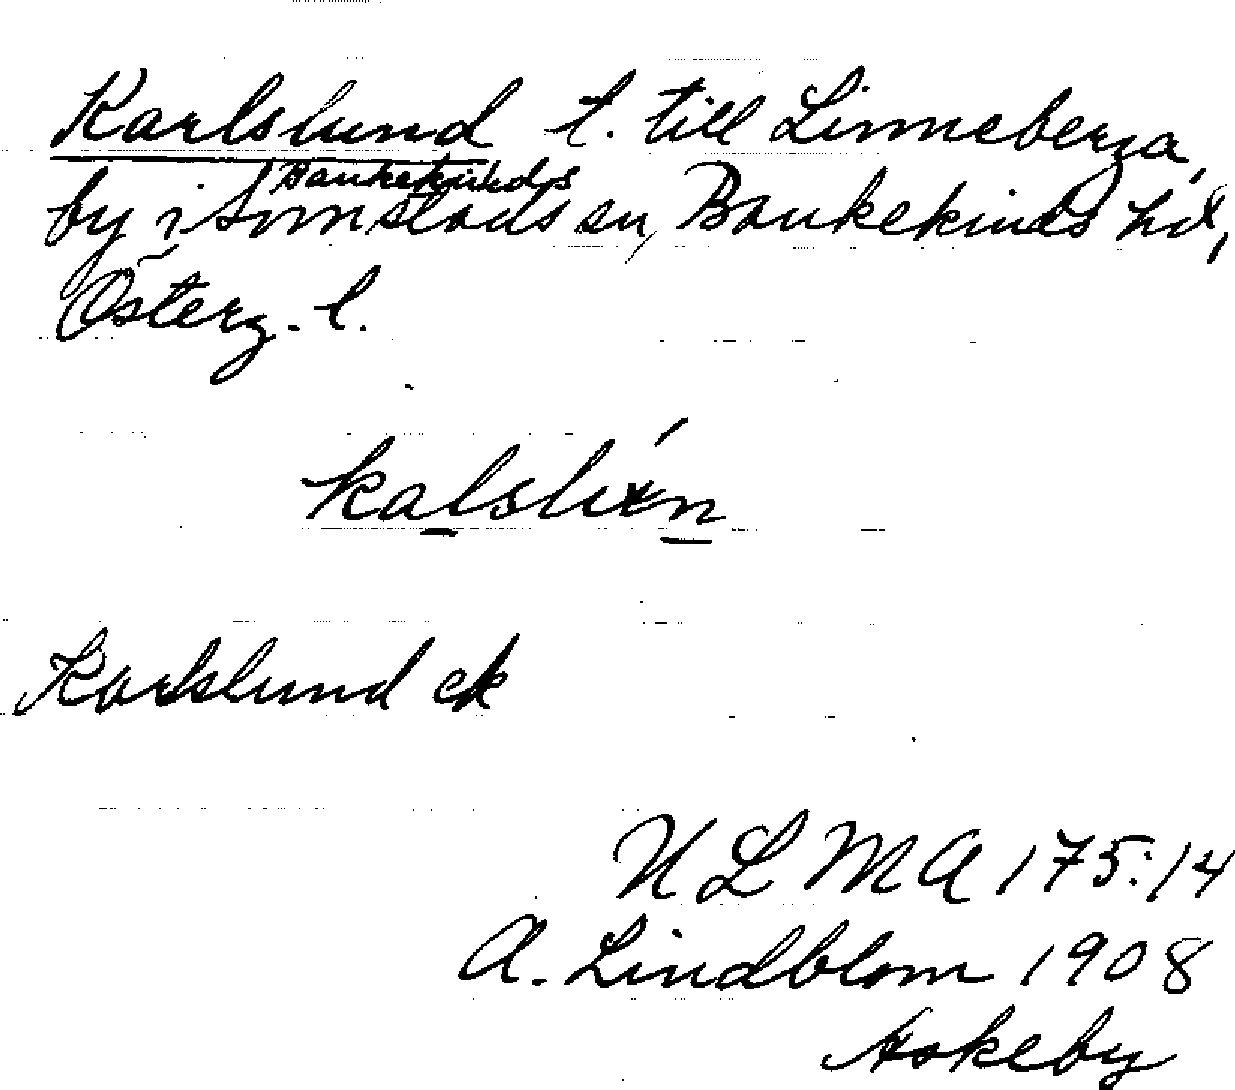 Karlslund t. till Linneberga,
Bankekinds
by i Grmstads sn, Bankekinds hd,
Österg. l.
kalslún
Karlslund ek
ULMA 175:14
A. Lindblom 1908
Askeby